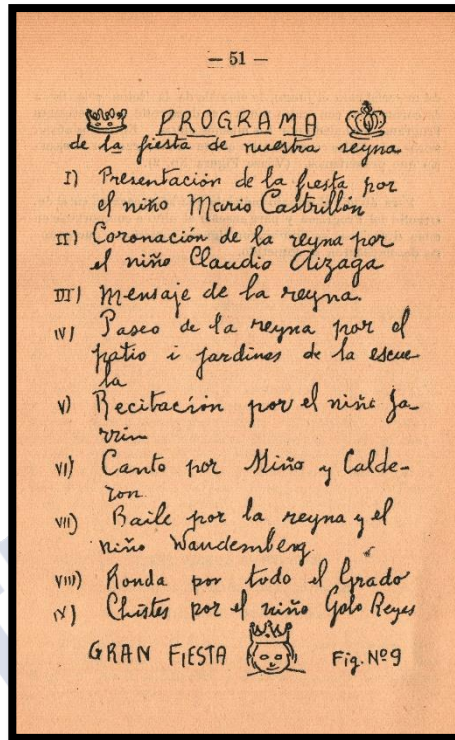 — 51 —
PROGRAMA
de la fiesta de nuestra reyna
I) Presentación de la fiesta por
el niño Mario Castrillón
II) Coronación de la reyna por
el niño Claudio Aizaga
III) Mensaje de la reyna.
IV) Paseo de la reyna por el
patio i jardines de la escue
la
V) Recitación por el niño Ja-
rrin
VI) Canto por Miño y Calde-
ron
VII) Baile por la reyna y el
niño Wandemberg
VIII) Ronda por todo el Grado
IX) Chistes por el niño Galo Reyes
GRAN FIESTA
Fig. Nº 9